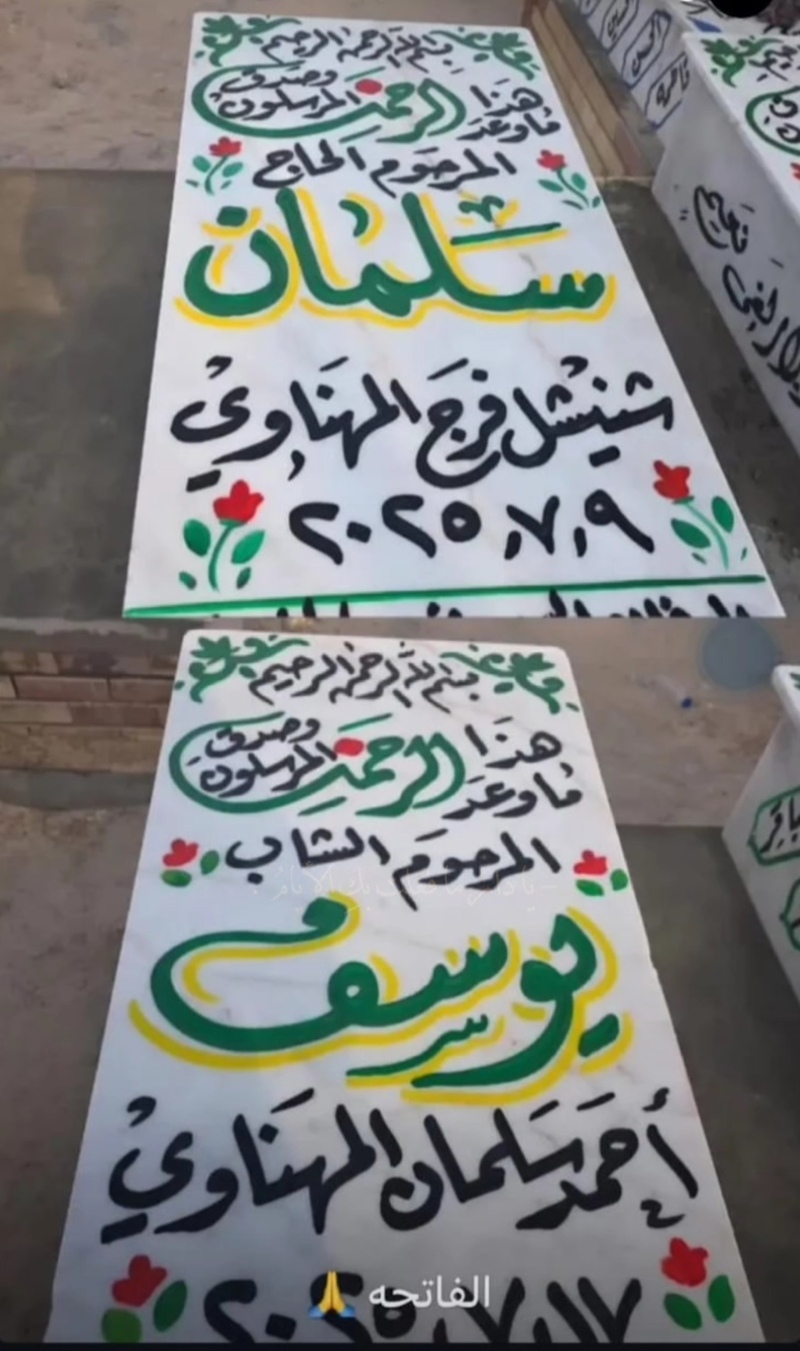 بسم الله الرحمن الرحيم
هذا
ما وعد الرحمن وصدق المرسلون
المرحوم الحاج
سلمان
شنيشل فرج المهناوي
٢٠٢٥,٧,٩
بسم الله الرحمن الرحيم
هذا
ما وعد الرحمن وصدق المرسلون
المرحوم الشاب
يوسف
أحمد سلمان المهناوي
٢٠٢٥,٧,١٧
الفاتحه 🙏